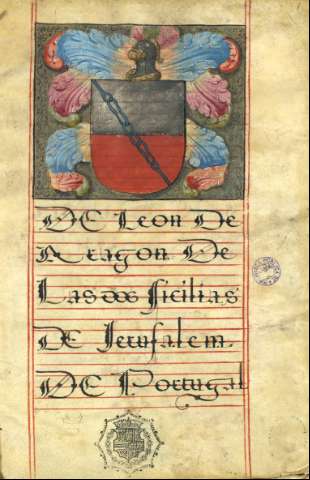 DE Leon De
Aragon De
Las dos Sicilias
DE Jerusalem.
DE Portugal